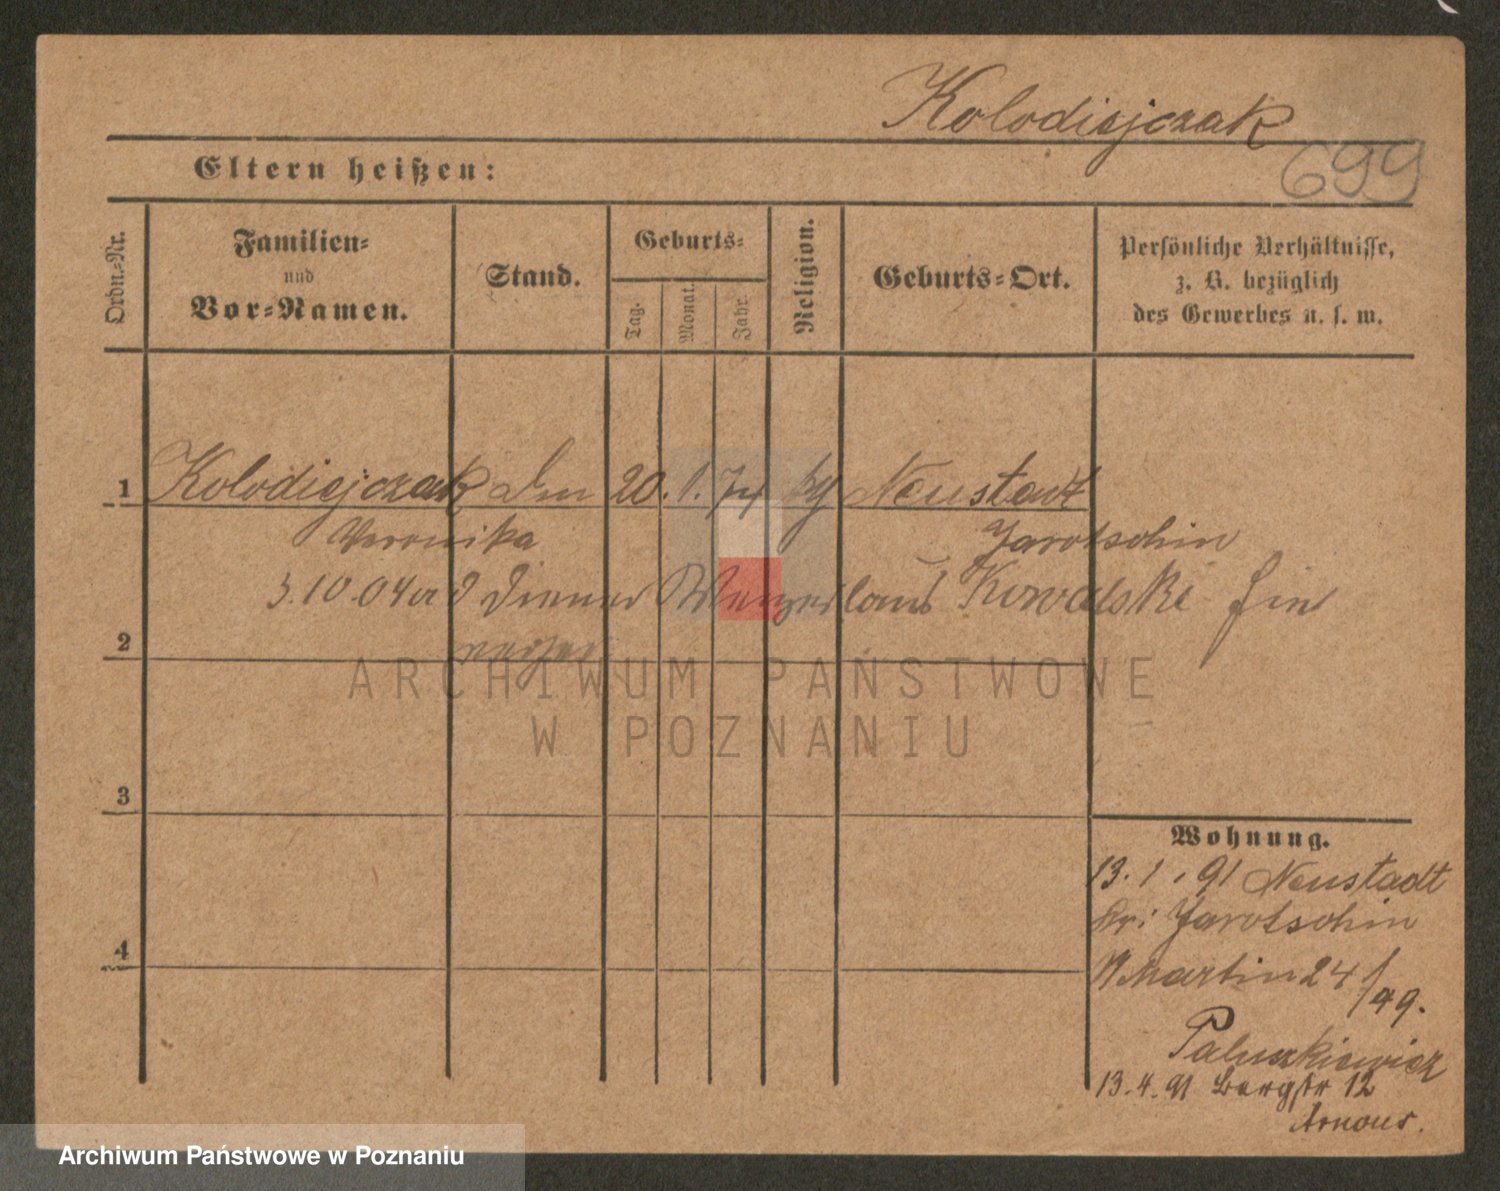 Kolodiejczak
699
Eltern heißen:
Ordn.-Nr.
Familien-
und
Vor-Namen.
Stand.
Geburts-
Tag.
Monat.
Jahr.
Religion.
Geburts-Ort.
Persönliche Verhältnisse,
z. B. bezüglich
des Gewerbes u. s. w.
1 Kolodiejczak 20. 1. 74 Neustadt
Veronika Jarotschin
3.10.04 Diener Kowalski
2
3
4
Wohnung.
13. 1. 91 Neustadt
Kr: Jarotschin
Martin 24/49.
Paluszkiewicz
13.4.91 Bergstr 12
Arnous.
ARCHIWUM PAŃSTWOWE
W POZNANIU
Archiwum Państwowe w Poznaniu